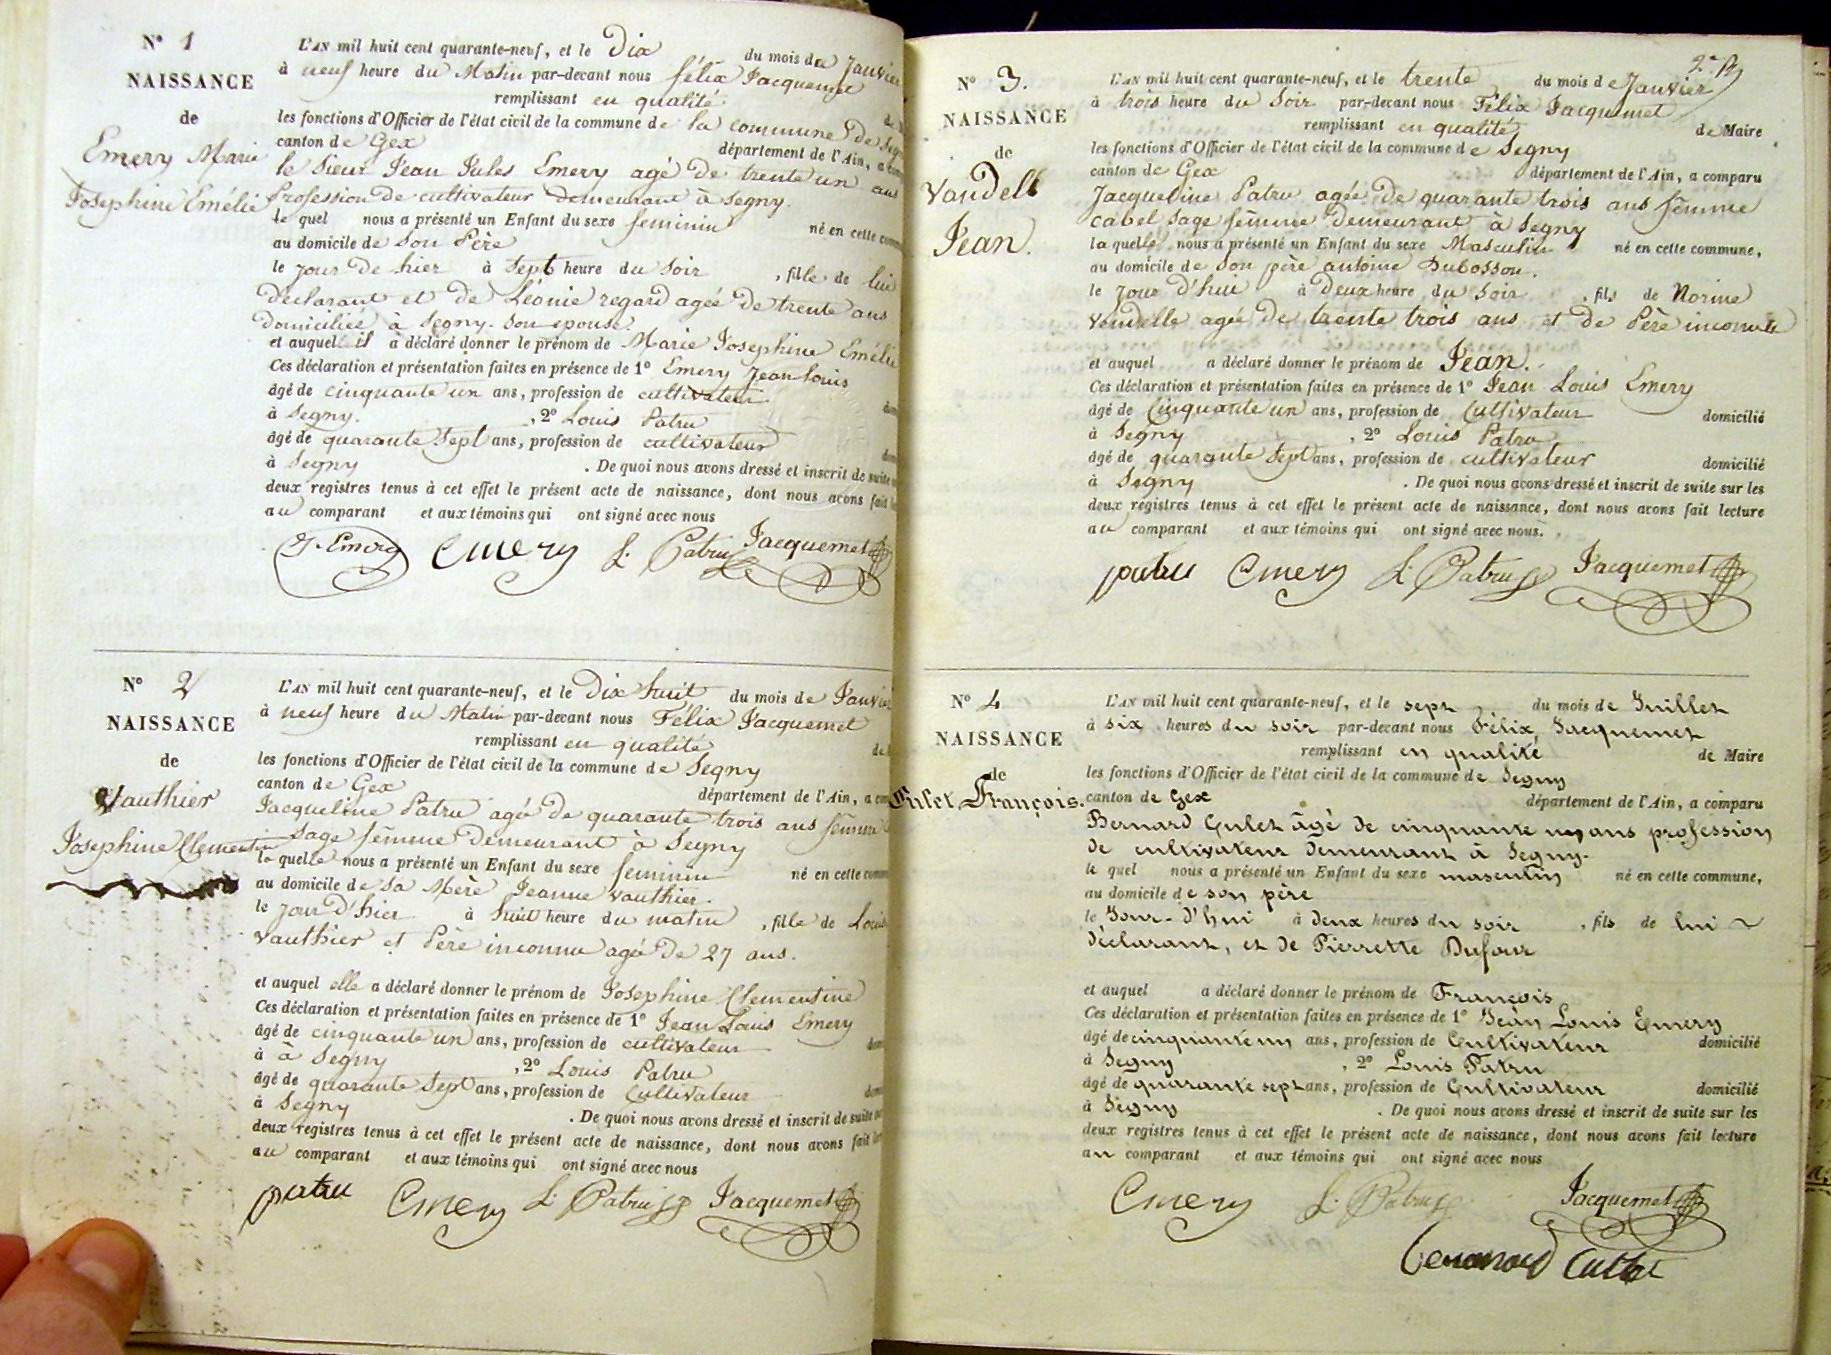 N° 1
NAISSANCE
de
Emery Marie
Josephine Emélie
L'AN mil huit cent quarante-neuf, et le Dix du mois de Janvier
à neuf heure du Matin par-devant nous félix Jacquemet
remplissant en qualité
les fonctions d'Officier de l'état civil de la commune de la commune de Segny
canton de Gex département de l'Ain, a
le Sieur Jean Jules Emery agé de trente un ans
Profession de cultivateur demeurant à Segny.
le quel nous a présenté un Enfant du sexe feminin né en cette
au domicile de son Père
le jour de hier à Sept heure du Soir , fille de lui
déclarant et de Léonie regard agée de trente ans
domiciliée à Segny. Son epouse.
et auquel il a déclaré donner le prénom de Marie Josephine Emélie
Ces déclaration et présentation faites en présence de 1° Emery Jean Louis
âgé de cinquante un ans, profession de cultivateur
à Segny. , 2° Louis Patru
âgé de quarante Sept ans, profession de cultivateur
à Segny . De quoi nous avons dressé et inscrit de suite
deux registres tenus à cet effet le présent acte de naissance, dont nous avons fait
au comparant et aux témoins qui ont signé avec nous
J. Emery Emery L. Patru Jacquemet
N° 2
NAISSANCE
de
Vauthier
Josephine Clementine
L'AN mil huit cent quarante-neuf, et le Dix huit du mois de Janvier
à neuf heure du Matin par-devant nous Félix Jacquemet
remplissant en qualité
les fonctions d'Officier de l'état civil de la commune de Segny
canton de Gex département de l'Ain, a
Jacqueline Patru agée de quarante trois ans fêmme
Sage fêmme demeurant à Segny
la quelle nous a présenté un Enfant du sexe feminin né en cette
au domicile de Sa Mère Jeanne Vauthier.
le jour d'hier à huit heure du matin , fille de
Vauthier et Père inconnu agée de 27 ans.
et auquel elle a déclaré donner le prénom de Josephine Clementine
Ces déclaration et présentation faites en présence de 1° Jean Louis Emery
âgé de cinquante un ans, profession de cultivateur
à à Segny , 2° Louis Patru
âgé de quarante Sept ans, profession de Cultivateur
à Segny . De quoi nous avons dressé et inscrit de suite
deux registres tenus à cet effet le présent acte de naissance, dont nous avons fait
au comparant et aux témoins qui ont signé avec nous
patru Emery L. Patru Jacquemet
N° 3.
NAISSANCE
de
Vandell
Jean.
L'AN mil huit cent quarante-neuf, et le trente du mois de Janvier
à trois heure du Soir par-devant nous Félix Jacquemet
remplissant en qualité de Maire
les fonctions d'Officier de l'état civil de la commune de Segny
canton de Gex département de l'Ain, a comparu
Jacqueline Patru agée de quarante trois ans fêmme
Cabel Sage fêmme demeurant à Segny
la quelle nous a présenté un Enfant du sexe Masculin né en cette commune,
au domicile de son père antoine Dubosson.
le jour d'hui à Deux heure du Soir , fils de Norine
Vandelle agée de trente trois ans et de Père inconnu
et auquel a déclaré donner le prénom de Jean.
Ces déclaration et présentation faites en présence de 1° Jean Louis Emery
âgé de Cinquante un ans, profession de Cultivateur domicilié
à Segny , 2° Louis Patru
âgé de quarante Sept ans, profession de cultivateur domicilié
à Segny . De quoi nous avons dressé et inscrit de suite sur les
deux registres tenus à cet effet le présent acte de naissance, dont nous avons fait lecture
au comparant et aux témoins qui ont signé avec nous.
patru Emery L. Patru Jacquemet
N° 4
NAISSANCE
de
Culet François.
L'AN mil huit cent quarante-neuf, et le sept du mois de Juillet
à six heures du soir par-devant nous Félix, Jacquemet
remplissant en qualité de Maire
les fonctions d'Officier de l'état civil de la commune de Segny
canton de Gex département de l'Ain, a comparu
Bernard Culet âgé de cinquante ans profession
de cultivateur demeurant à Segny.
le quel nous a présenté un Enfant du sexe masculin né en cette commune,
au domicile de son père
le Jour-d'hui à deux heures du soir , fils de lui
déclarant, et de Pierrette Dufour
et auquel a déclaré donner le prénom de François
Ces déclaration et présentation faites en présence de 1° Jean Louis Emery
âgé de cinquante un ans, profession de Cultivateur domicilié
à Segny , 2° Louis Patru
âgé de quarante sept ans, profession de Cultivateur domicilié
à Segny . De quoi nous avons dressé et inscrit de suite sur les
deux registres tenus à cet effet le présent acte de naissance, dont nous avons fait lecture
au comparant et aux témoins qui ont signé avec nous
Emery L. Patru Jacquemet
bernard Cullet